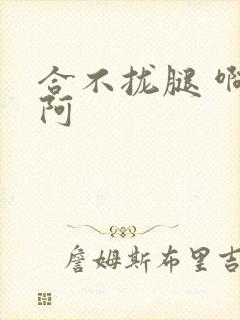 合不拢腿 啊
阿
詹姆斯布里吉